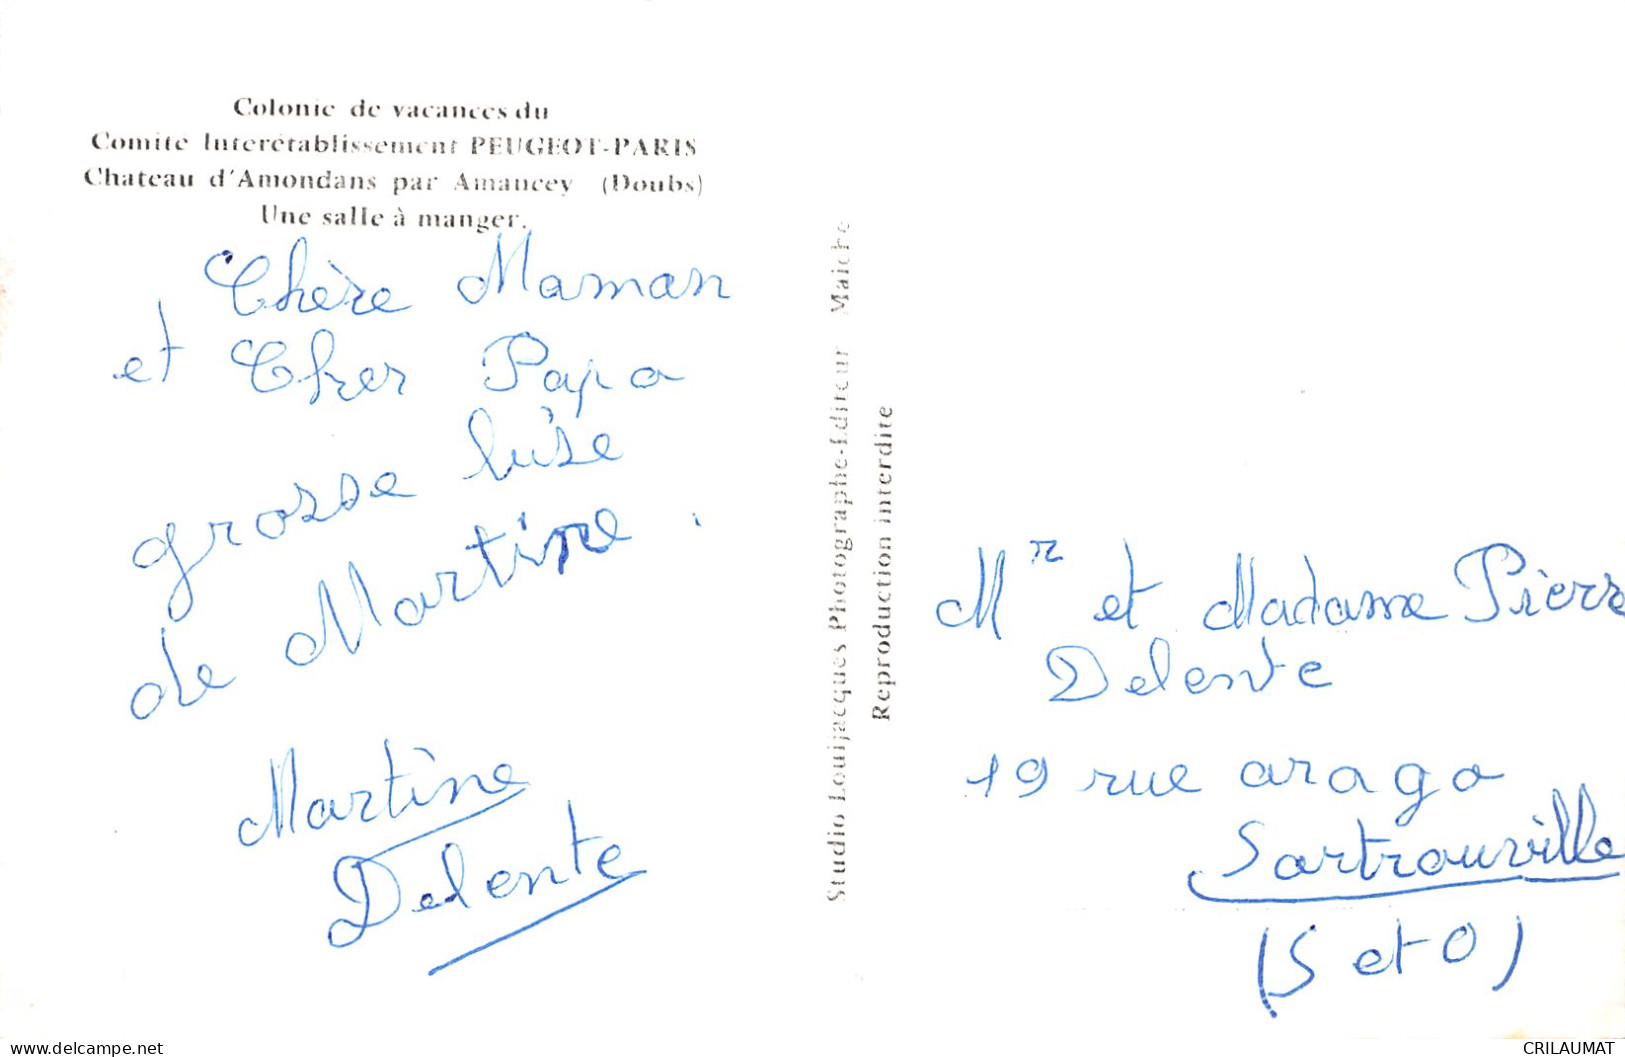 Colonie de vacances du
Comite Interétablissement PEUGEOT-PARIS
Chateau d'Amondans par Amancey (Doubs)
Une salle à manger.
Chère Maman
et Cher Papa
grosse bise
de Martine.
Martine
Delente
Studio Louijacques Photographe-Editeur Maiche
Reproduction interdite
Mr et Madame Pierre
Delente
19 rue arago
Sartrouville
(S et O)
delcampe.net
CRILAUMAT